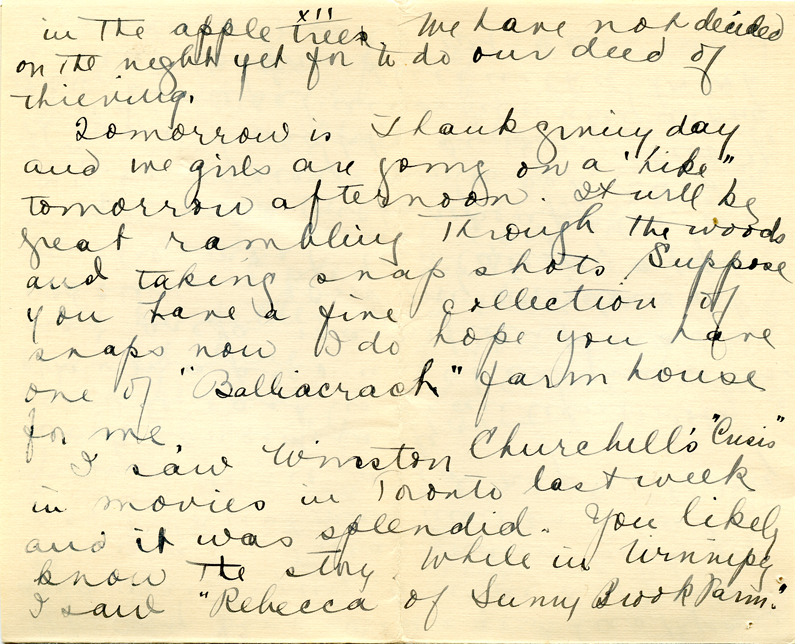 in the apple trees. xii We have not decided
on the night yet for to do our deed of
thieving.
Tomorrow is Thanksgiving day
and we girls are going on a "hike"
tomorrow afternoon. It will be
great rambling through the woods
and taking snap shots Suppose
you have a fine collection of
snaps now I do hope you have
one of "Balliacrach" farm house
for me.
I saw Winston Churchell's "Crisis"
in movies in Toronto last week
and it was splendid. You likely
know the story. While in Winnipeg
I saw "Rebecca of Sunny Brook Farm."